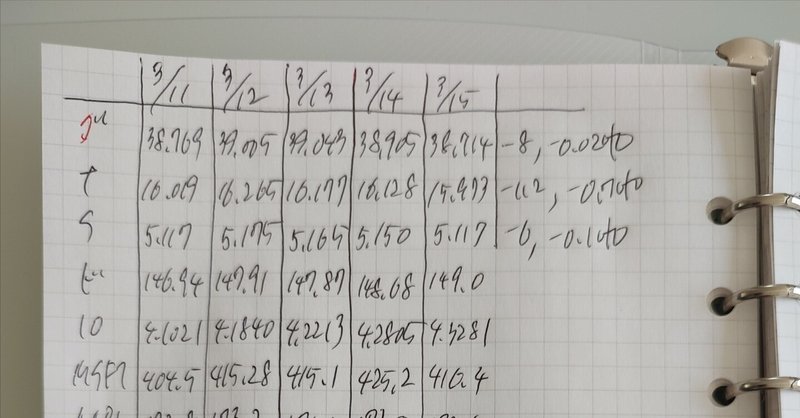 3/11 3/12 3/13 3/14 3/15
38.769 39.005 39.043 38.905 38.714 -8, -0.02%
16.019 16.265 16.177 16.128 15.973 -112, -0.7%
S 5.117 5.175 5.165 5.150 5.117 -6, -0.1%
146.94 147.91 147.87 148.68 149.0
10 4.1021 4.1840 4.2213 4.2805 4.3281
404.5 415.28 415.1 425.2 416.4